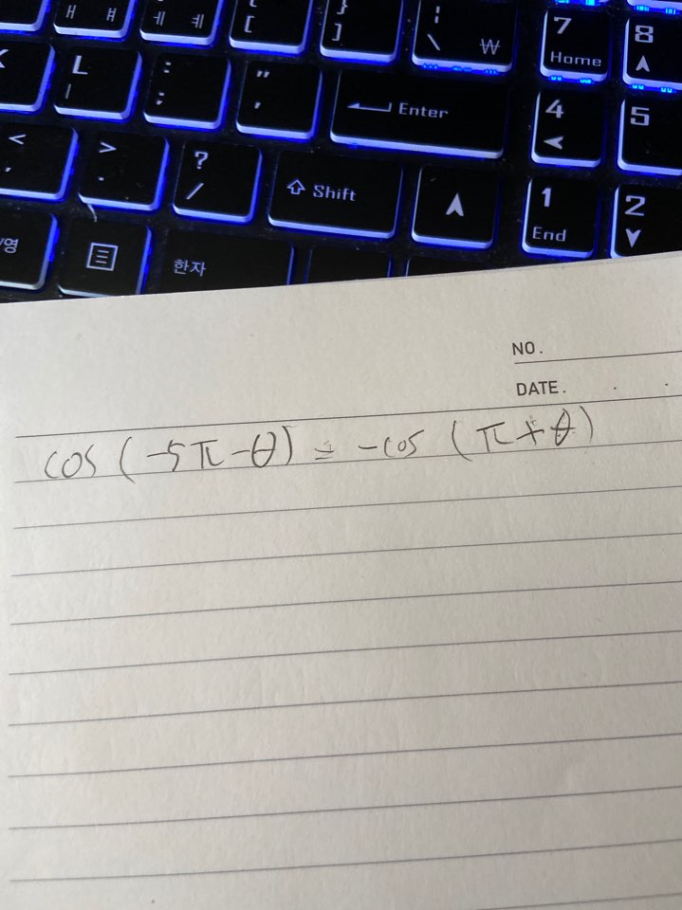 ㅐ ㅔ ㅖ ㅔ [ } ] ¦ \ ₩ 7 Home 8
L : ; " ' Enter 4 5
< , > . ? / Shift 1 End 2
한자
NO.
DATE. . .
cos (-5π-θ) = -cos (π+θ)